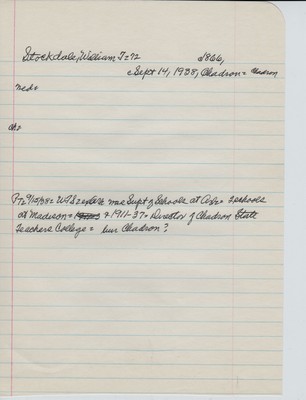 Stockdale, William T = 72 d1866,
c Sept 14, 1938, Chadron = Chadron
ned=
ch=
P72 9/15/38 = WTS was Supt of Schools at = & schools
at Madison = & 1911-37 = Director of Chadron State
Teachers College = bur Chadron?